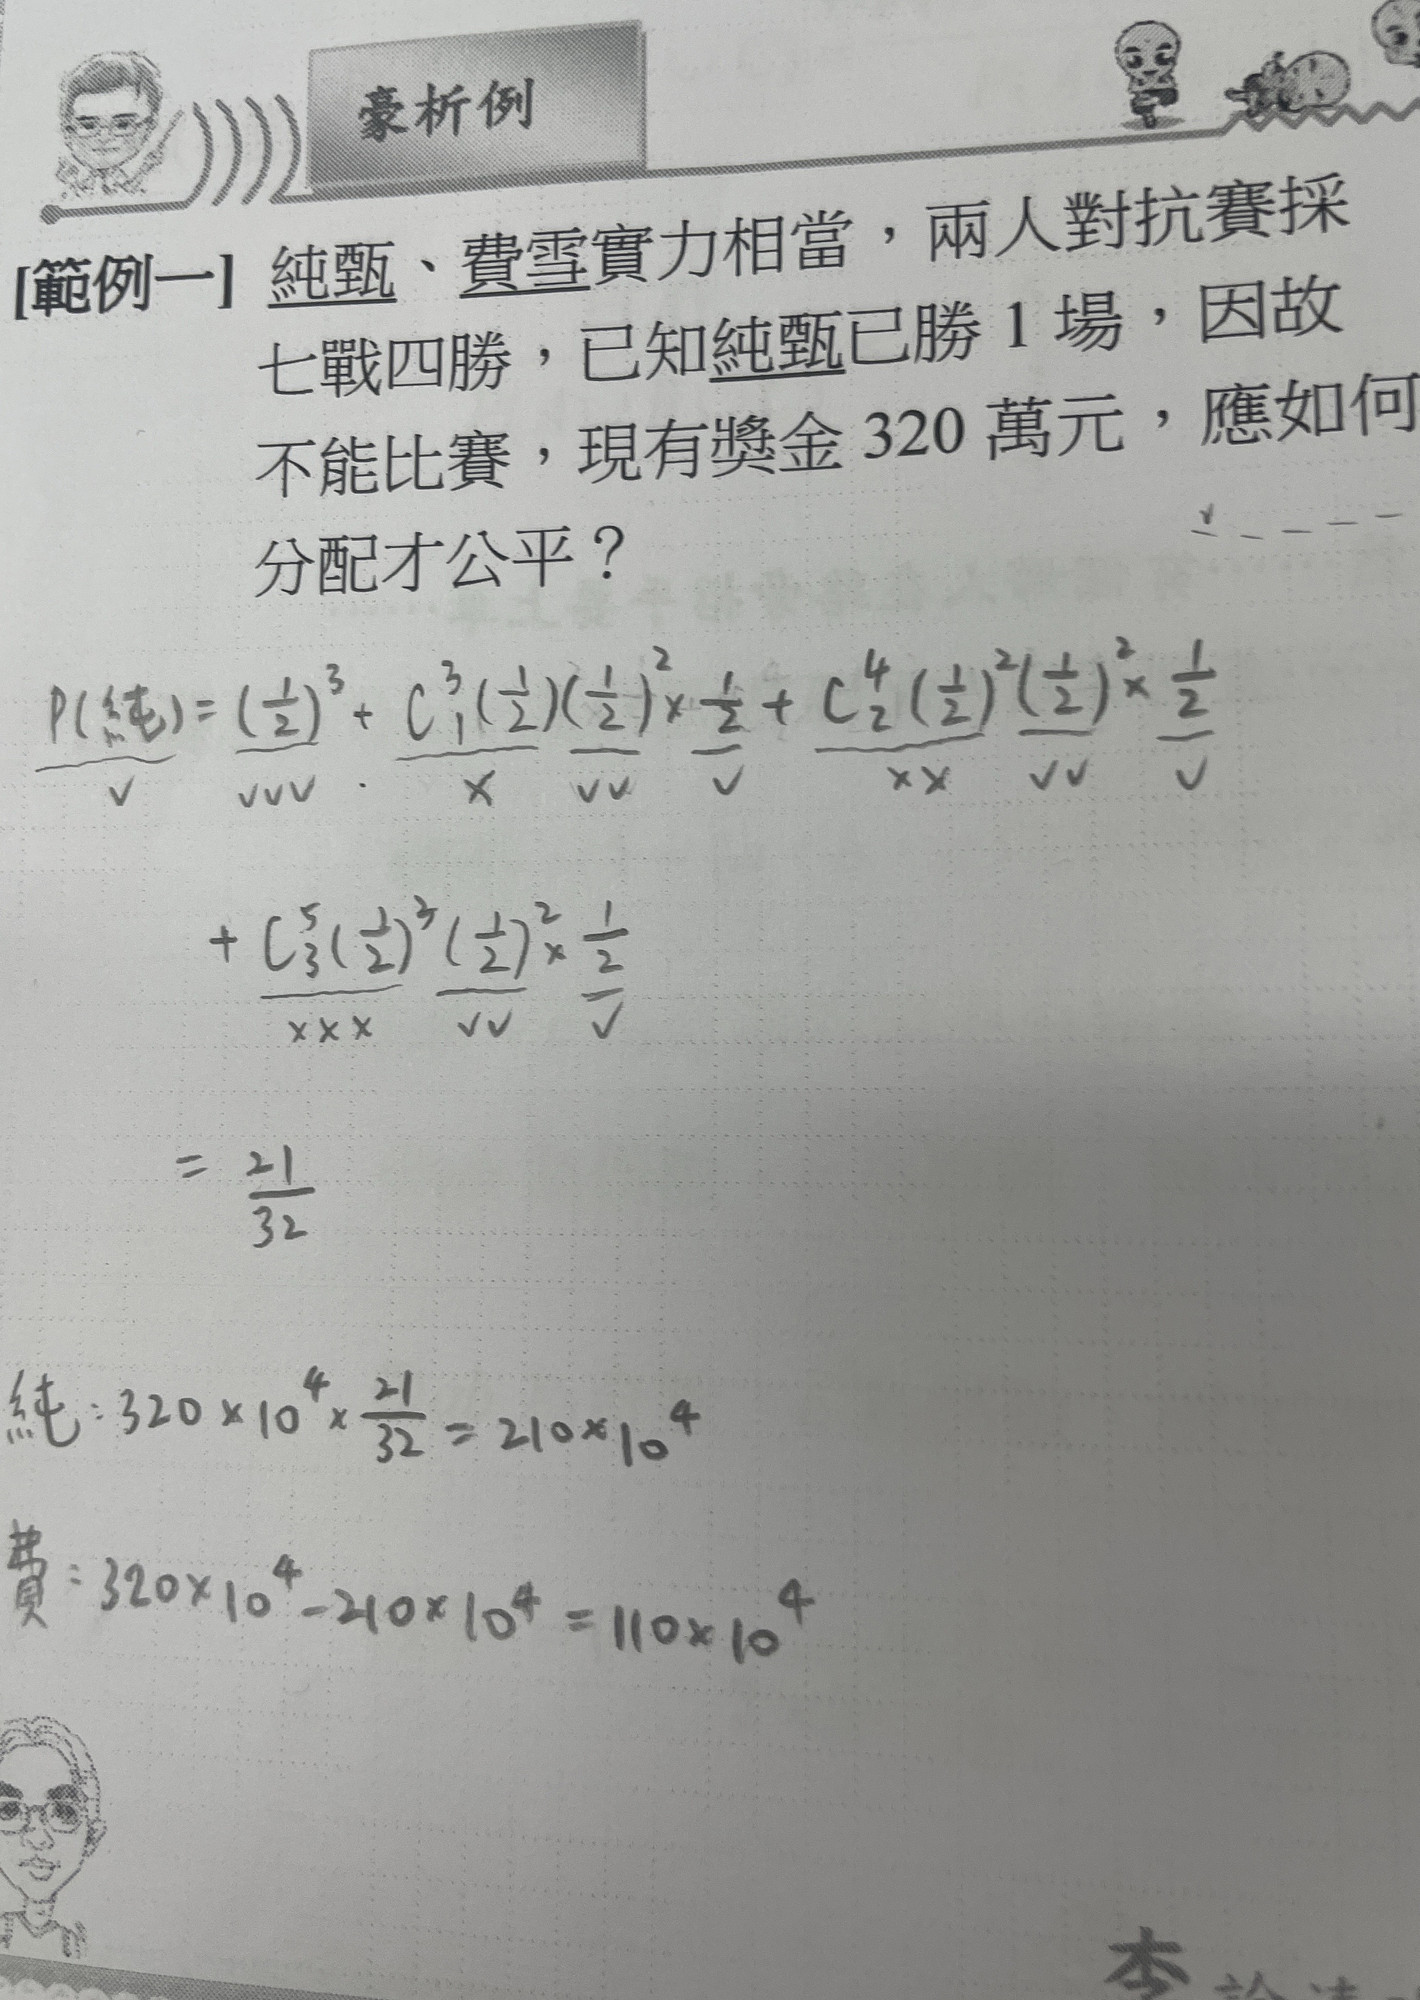 豪析例
[範例一] 純甄、費雪實力相當，兩人對抗賽採
七戰四勝，已知純甄已勝 1 場，因故
不能比賽，現有獎金 320 萬元，應如何
分配才公平？
P(純) = (1/2)³ + C³₁(1/2)(1/2)² × 1/2 + C⁴₂(1/2)²(1/2)² × 1/2
v vvv . x vv v xx vv v
+ C⁵₃(1/2)³(1/2)² × 1/2
xxx vv v
= 21/32
純：320 × 10⁴ × 21/32 = 210 × 10⁴
費：320 × 10⁴ - 210 × 10⁴ = 110 × 10⁴